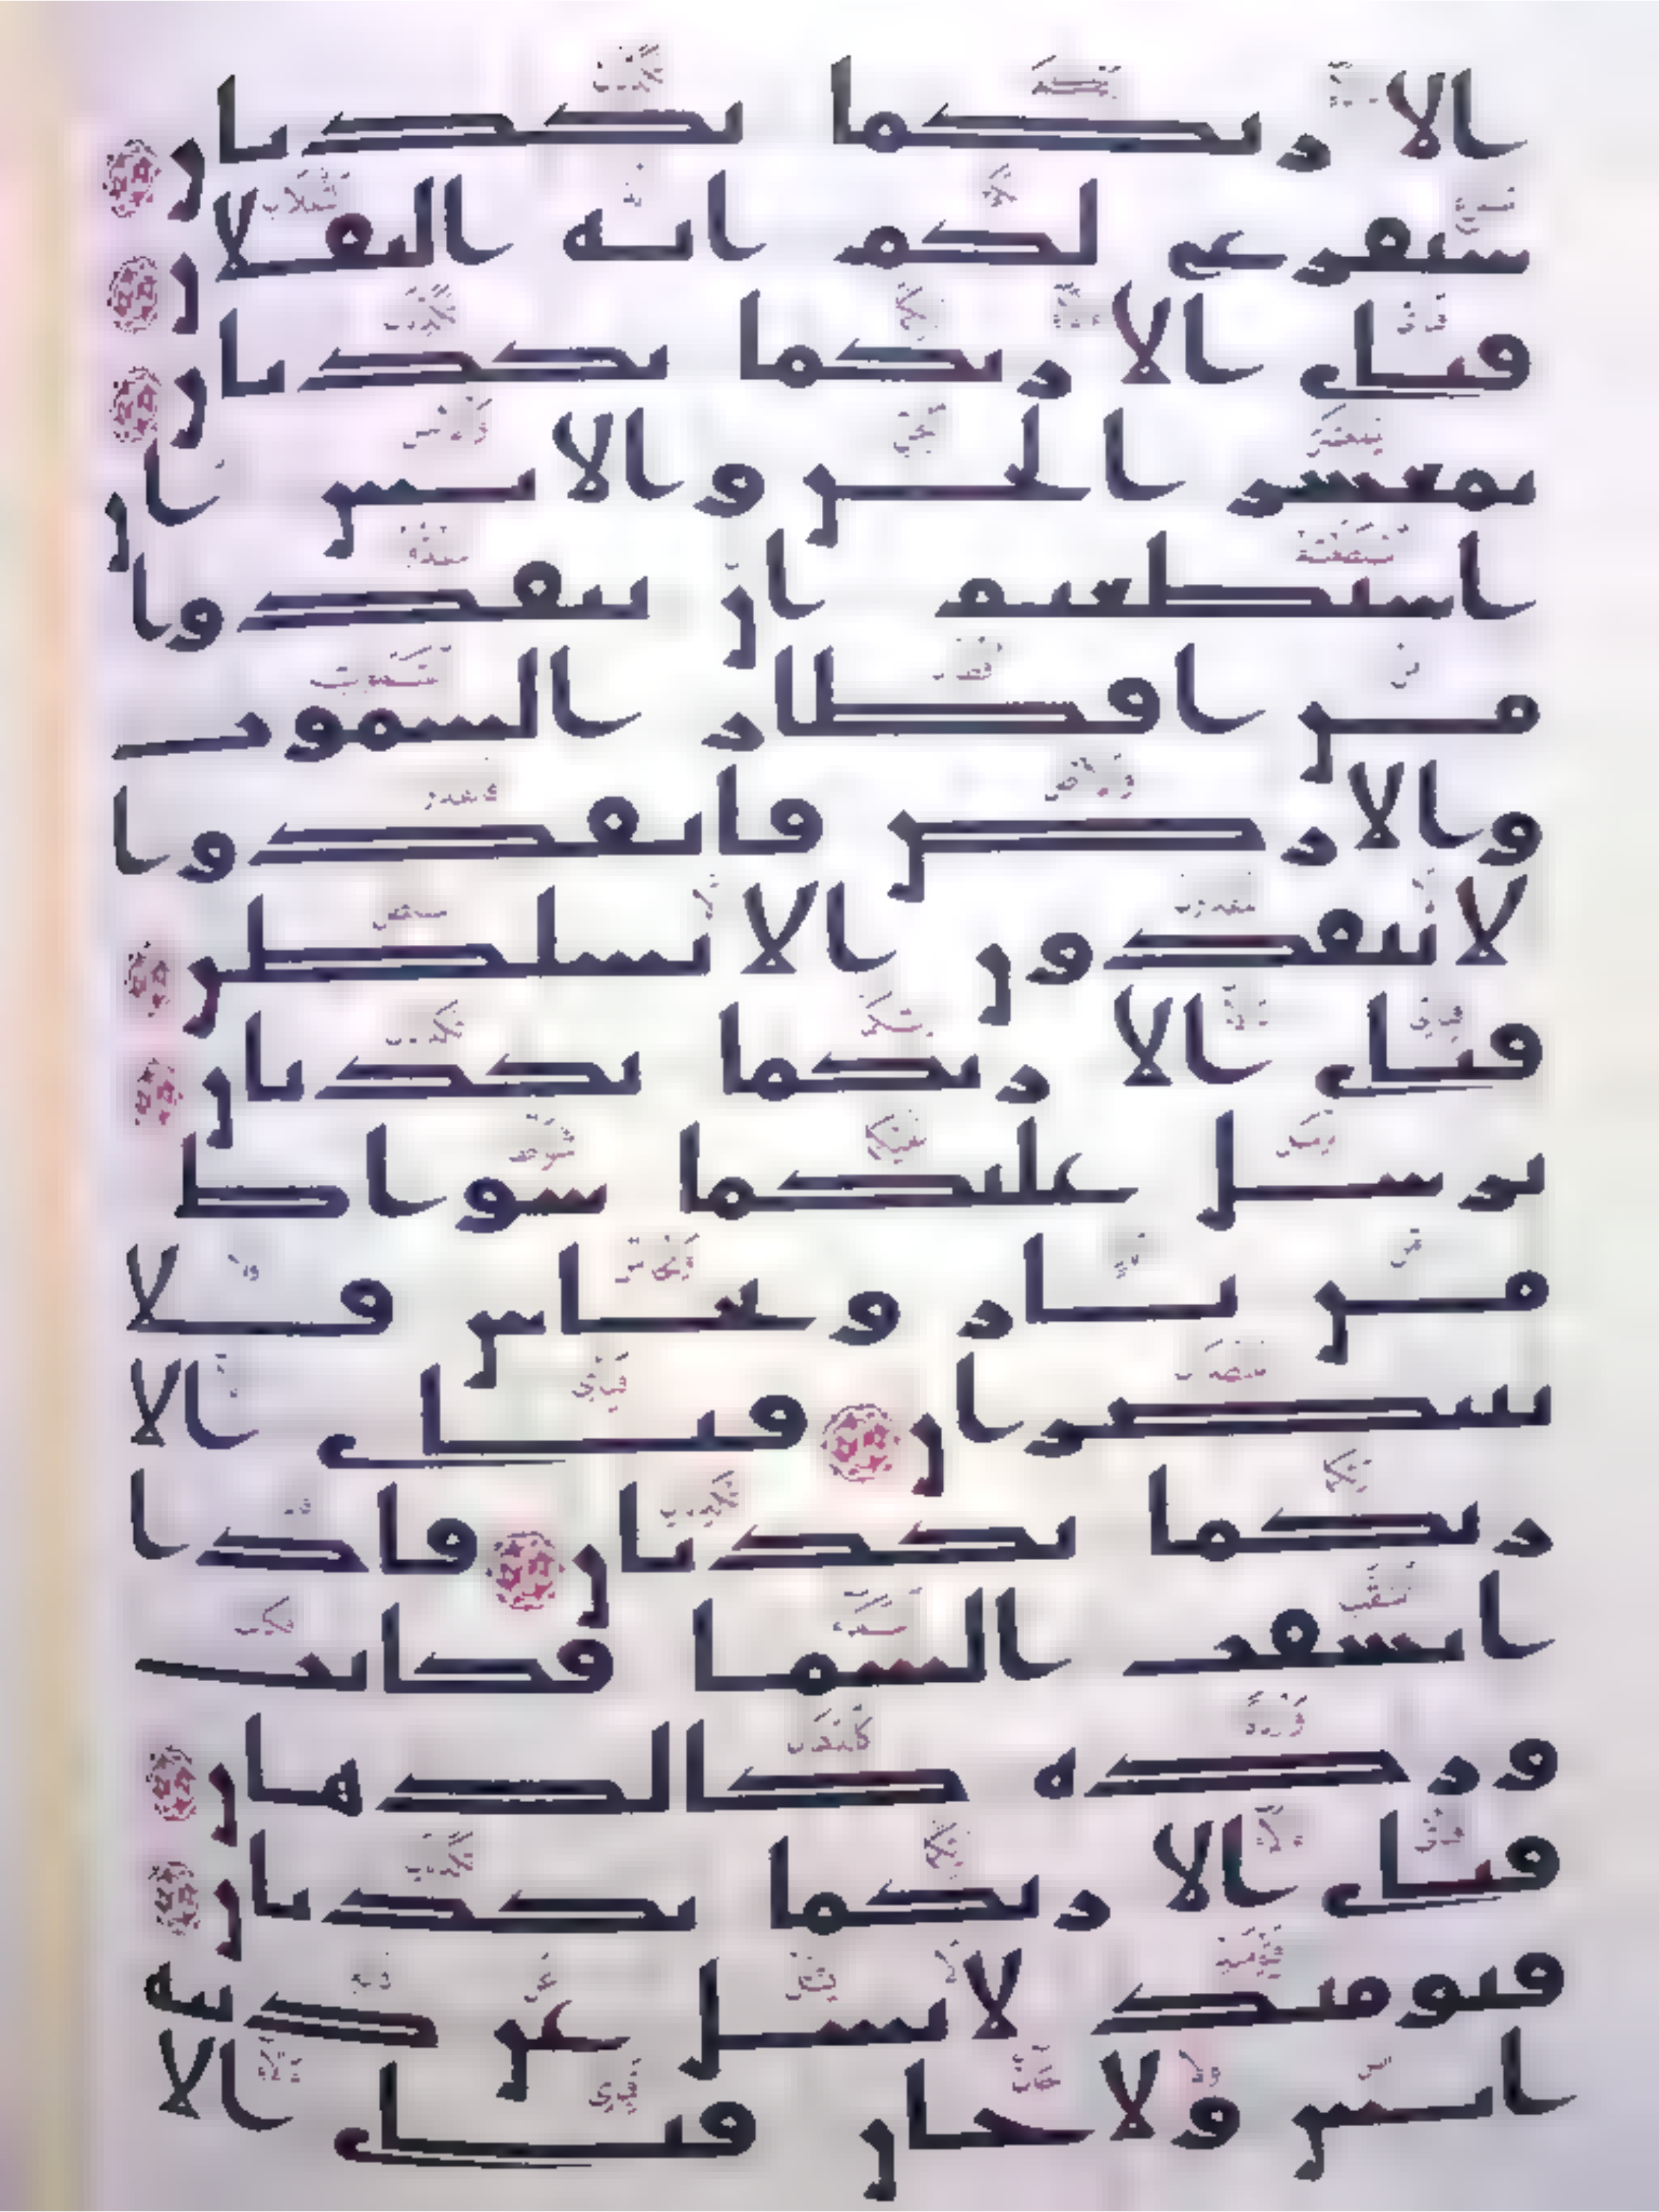 الا ربكما تكذبان
سنفرغ لكم ايه الثقلان
فباي الا ربكما تكذبان
يمعشر الجن والانس ان
استطعتم ان تنفذوا
من اقطار السموت
والارض فانفذوا
لا تنفذون الا بسلطن
فباي الا ربكما تكذبان
يرسل عليكما شواظ
من نار ونحاس فلا
تنتصران فباي الا
ربكما تكذبان فاذا
انشقت السما فكانت
وردة كالدهان
فباي الا ربكما تكذبان
فيومئذ لا يسل عن ذنبه
انس ولا جان فباي الا